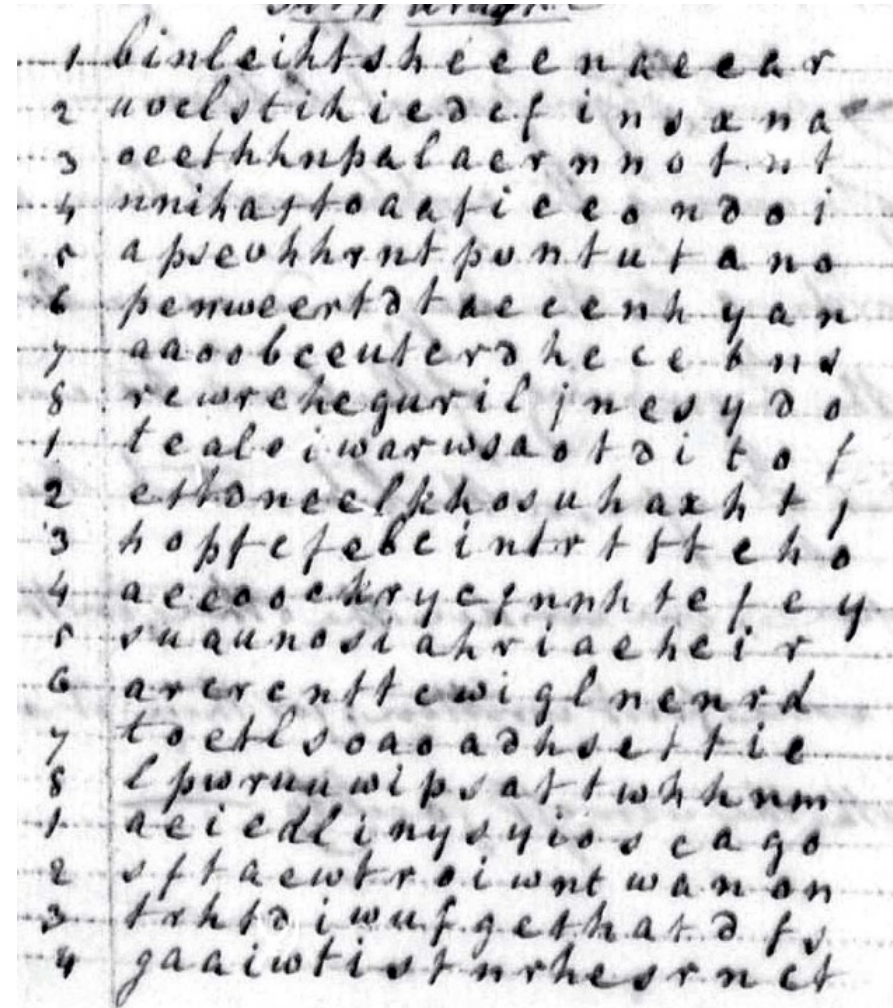 1 binleihtsheeenaeear
2 uvelstihiedcfinsana
3 oeethhnpalaernnotnt
4 nnihattoaatiecondoi
5 apsevhhrntpvntutano
6 penweertdtaecenhyan
7 aaoobeeuterdhecebns
8 rewreheguriljnesydo
1 tealeiwarwsaotditof
2 ettdneelkhosuhaxht,
3 hopfcfebcintrttteho
4 aeeooekrycfnnhtefey
5 suaunosiahriaeheir
6 arercnttewiglnenrd
7 toetlsoaoadhsettie
8 lpwruuwipsattwhhnm
1 aeiedlinysyioscago
2 sftaewtroiwntwanon
3 trhtdiwufgethatdfs
4 gaaiwtistnrhesrnct